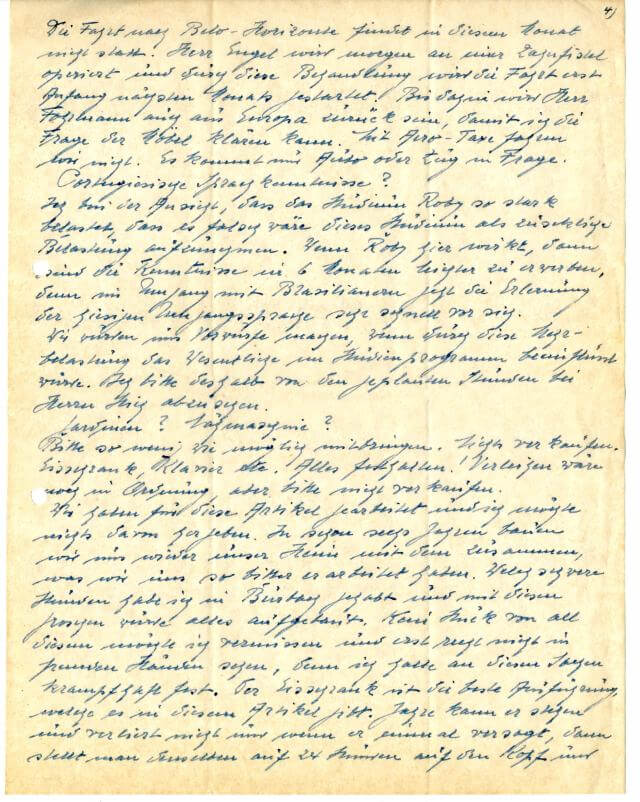 4)
Die Fahrt nach Belo-Horizonte findet in diesem Monat
nicht statt. Herr Engel wird morgen an einer Zahnfistel
operiert und durch diese Behandlung wird die Fahrt erst
Anfang nächsten Monats gestartet. Bis dahin wird Herr
auch aus Europa zurück sein, damit ich die
Frage der Möbel klären kann. Mit Aero-Taxe fahren
wir nicht. Es kommt nur Auto oder Zug in Frage.
Portugiesische Sprachkenntnisse?
Ich bin der Ansicht, dass das Studium Roby so stark
belastet, dass es falsch wäre dieses Studium als zusätzliche
Belastung aufzunehmen. Wenn Roby hier wirkt, dann
sind die Kenntnisse in 6 Monaten leichter zu erwerben,
denn im Umgang mit Brasilianern geht die Erlernung
der hiesigen Umgangssprache sehr schnell vor sich.
Wir würden uns Vorwürfe machen, wenn durch diese Mehr-
belastung das Wesentliche im Studienprogramm beeinflusst
würde. Ich bitte deshalb von den geplanten Stunden bei
Herrn abzusehen.
Gardinen? Nähmaschine?
Bitte so wenig wie möglich mitbringen. Nichts verkaufen.
Eisschrank, Klavier etc. Alles festhalten! Verleihen wäre
noch in Ordnung, aber bitte nicht verkaufen.
Wir haben für diese Artikel gearbeitet und ich möchte
nichts davon hergeben. In sechs Jahren bauen
wir uns wieder unser Heim mit dem zusammen,
was wir uns so bitter erarbeitet haben. Welch schwere
Stunden habe ich in gehabt und mit diesen
wurde alles aufgebaut. Kein Stück von all
diesem möchte ich vermissen und erst recht nicht in
fremden Händen sehen, denn ich halte an diesen Sachen
krampfhaft fest. Der Eisschrank ist die beste Ausführung,
welche es in diesem Artikel gibt. Jahre kann er stehen
und verliert nicht und wenn er einmal versagt, dann
stellt man denselben auf 24 Stunden auf den Kopf und